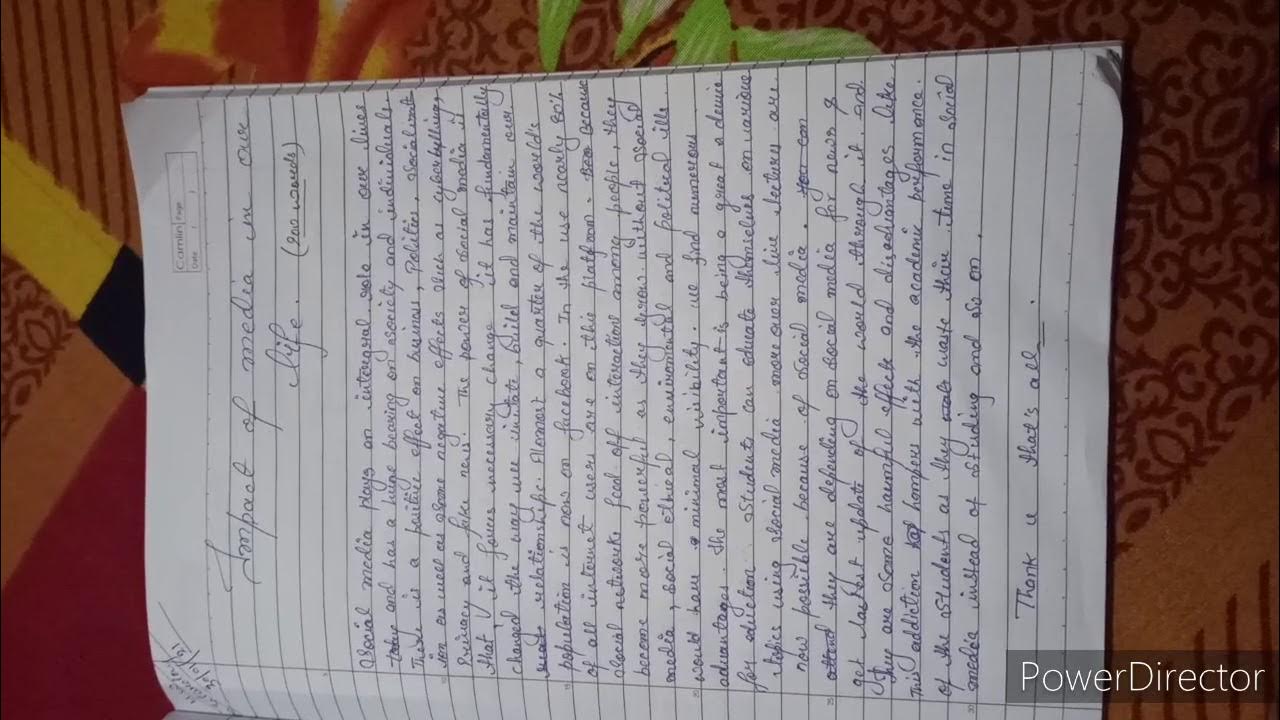 Camlin Page
Date
Impact of media in our
life. (200 words)
Social media plays an intergral role in our lives
and has a huge bearing on society and individuals.
There is a positive effect on business, Politics, socialisat
ion as well as some negative effects such as cyberbullying,
Privacy and fake news. The power of social media is
that it forces necessary change it has fundamentally
changed the way we initate, build and maintain our
relationships. Alomost a quarter of the world's
population is now on facebook. In the use nearly 80%
of all internet users are on this platform. Because
Social networks feed off interactions among people, they
become more powerful as they grow. without social
media, social ethical, enviromental and political ills
would have minimal visibility. we find numerous
advantages the most important is being a great a device
for eduction. students can educate themselves on various
topics using social media more over live lectures are
now possible because of social media.
they are depending on social media for news &
get lastest update of the world through it. And
they are some harmful effects and disadvantages like
This addiction hampers with the academic performance.
of the students as they waste their time in social
media instead of studing and so on.
Thank u that's all.
PowerDirector